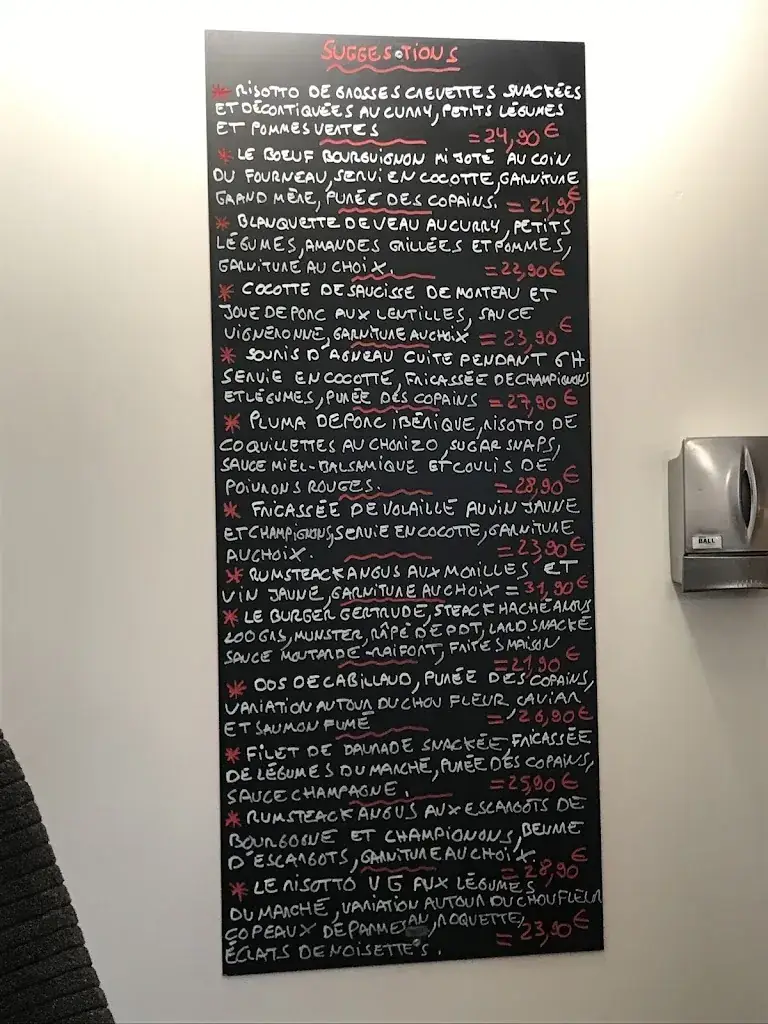 SUGGESTIONS
* RISOTTO DE GROSSES CREVETTES SNACKÉES
ET DÉCORTIQUÉES AU CURRY, PETITS LÉGUMES
ET POMMES VERTES = 24,90 €
* LE BOEUF BOURGUIGNON MIJOTÉ AU COIN
DU FOURNEAU, SERVI EN COCOTTE, GARNITURE
GRAND MÈRE, PURÉE DES COPAINS. = 21,90 €
* BLANQUETTE DE VEAU AU CURRY, PETITS
LÉGUMES, AMANDES GRILLÉES ET POMMES,
GARNITURE AU CHOIX. = 22,90 €
* COCOTTE DE SAUCISSE DE MORTEAU ET
JOUE DE PORC AUX LENTILLES, SAUCE
VIGNERONNE, GARNITURE AU CHOIX = 23,90 €
* SOURIS D'AGNEAU CUITE PENDANT 6H
SERVIE EN COCOTTE, FRICASSÉE DE CHAMPIGNONS
ET LÉGUMES, PURÉE DES COPAINS = 27,90 €
* PLUMA DE PORC IBÉRIQUE, RISOTTO DE
COQUILLETTES AU CHORIZO, SUGAR SNAPS,
SAUCE MIEL-BALSAMIQUE ET COULIS DE
POIVRONS ROUGES. = 28,90 €
* FRICASSÉE DE VOLAILLE AU VIN JAUNE
ET CHAMPIGNONS, SERVIE EN COCOTTE, GARNITURE
AU CHOIX. = 23,90 €
* RUMSTEACK ANGUS AUX MORILLES ET
VIN JAUNE, GARNITURE AU CHOIX = 31,90 €
* LE BURGER GERTRUDE, STEACK HACHÉ ANGUS
200GRS, MUNSTER, RÂPÉ DE PDT, LARD SNACKÉ
SAUCE MOUTARDE-RAIFORT, FRITES MAISON
= 21,90 €
* DOS DE CABILLAUD, PURÉE DES COPAINS,
VARIATION AUTOUR DU CHOU FLEUR, CAVIAR
ET SAUMON FUMÉ = 26,90 €
* FILET DE DAURADE SNACKÉE, FRICASSÉE
DE LÉGUMES DU MARCHÉ, PURÉE DES COPAINS,
SAUCE CHAMPAGNE. = 25,90 €
* RUMSTEACK ANGUS AUX ESCARGOTS DE
BOURGOGNE ET CHAMPIGNONS, BEURRE
D'ESCARGOTS, GARNITURE AU CHOIX.
= 28,90 €
* LE RISOTTO VG AUX LÉGUMES
DU MARCHÉ, VARIATION AUTOUR DU CHOU FLEUR
COPEAUX DE PARMESAN, ROQUETTE,
= 23,90 €
ÉCLATS DE NOISETTES.
BALL